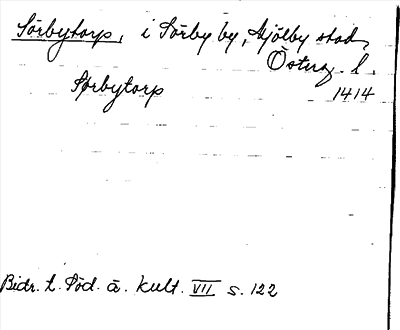 Sörbytorp, i Sörby by, Mjölby stad,
Österg. l.
Sørbytorp 1414
Bidr. t. Söd. ä. kult. VII s. 122